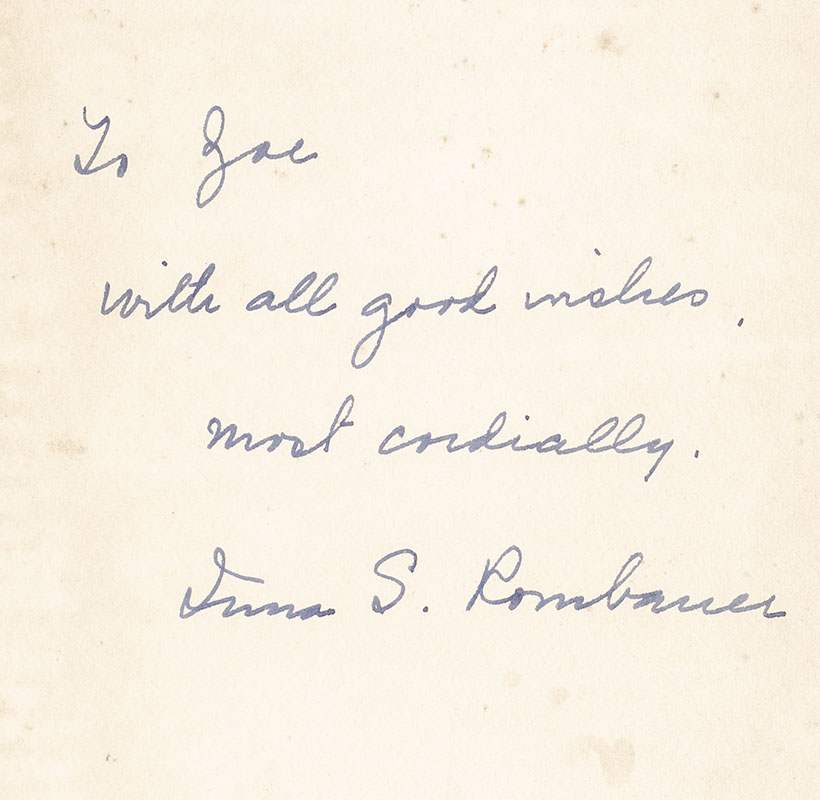 To Zoe
with all good wishes,
most cordially.
Irma S. Rombauer